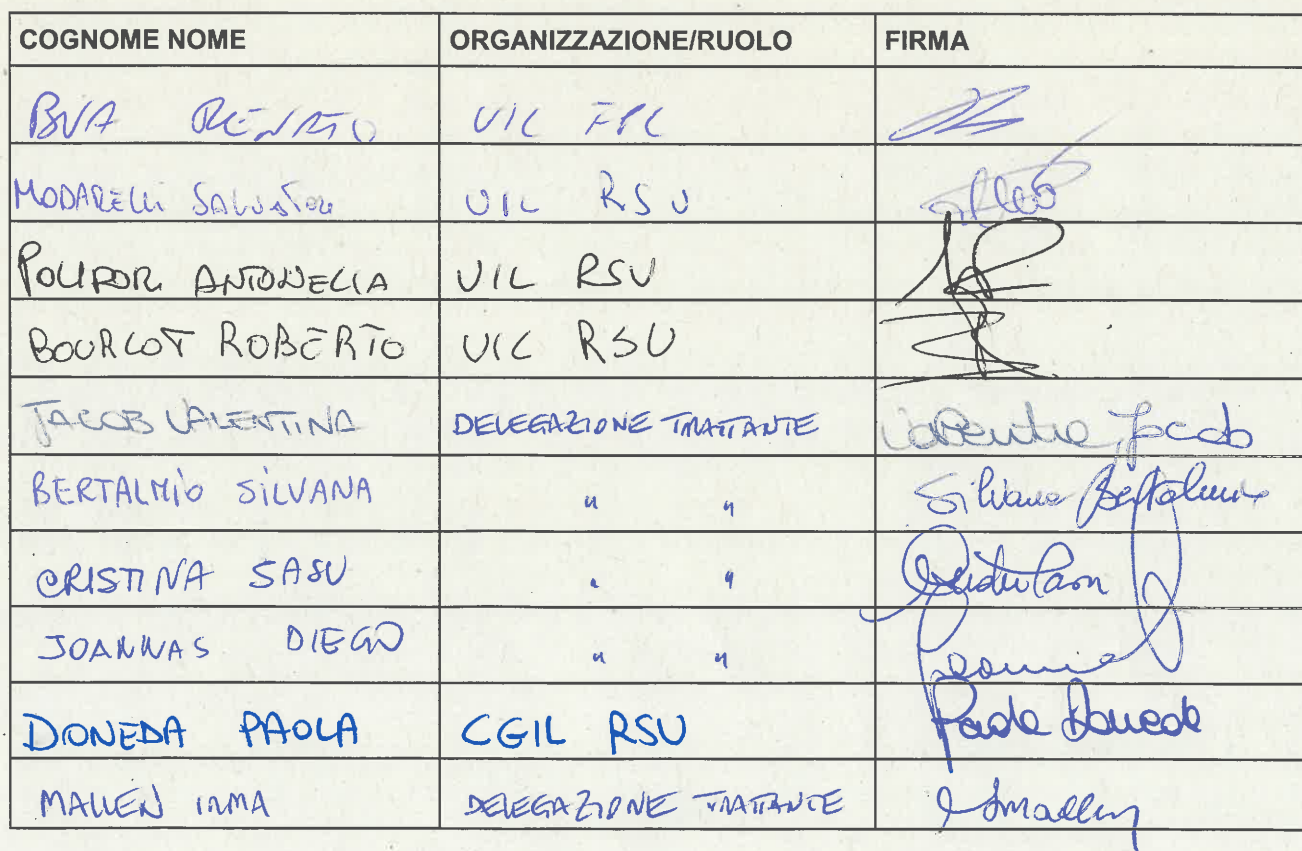 COGNOME NOME ORGANIZZAZIONE/RUOLO FIRMA
BUA RENATO UIL FPL
MODARELLI SALVATORE UIL RSU
POLIPORI ANTONELLA UIL RSU
BOURLOT ROBERTO UIL RSU
JACOB VALENTINA DELEGAZIONE TRATTANTE Valentina Jacob
BERTALMIO SILVANA " " Silvana Bertalmio
CRISTINA SASU " "
JOANNAS DIEGO " "
DONEDA PAOLA CGIL RSU Paola Doneda
MALLEN IRMA DELEGAZIONE TRATTANTE